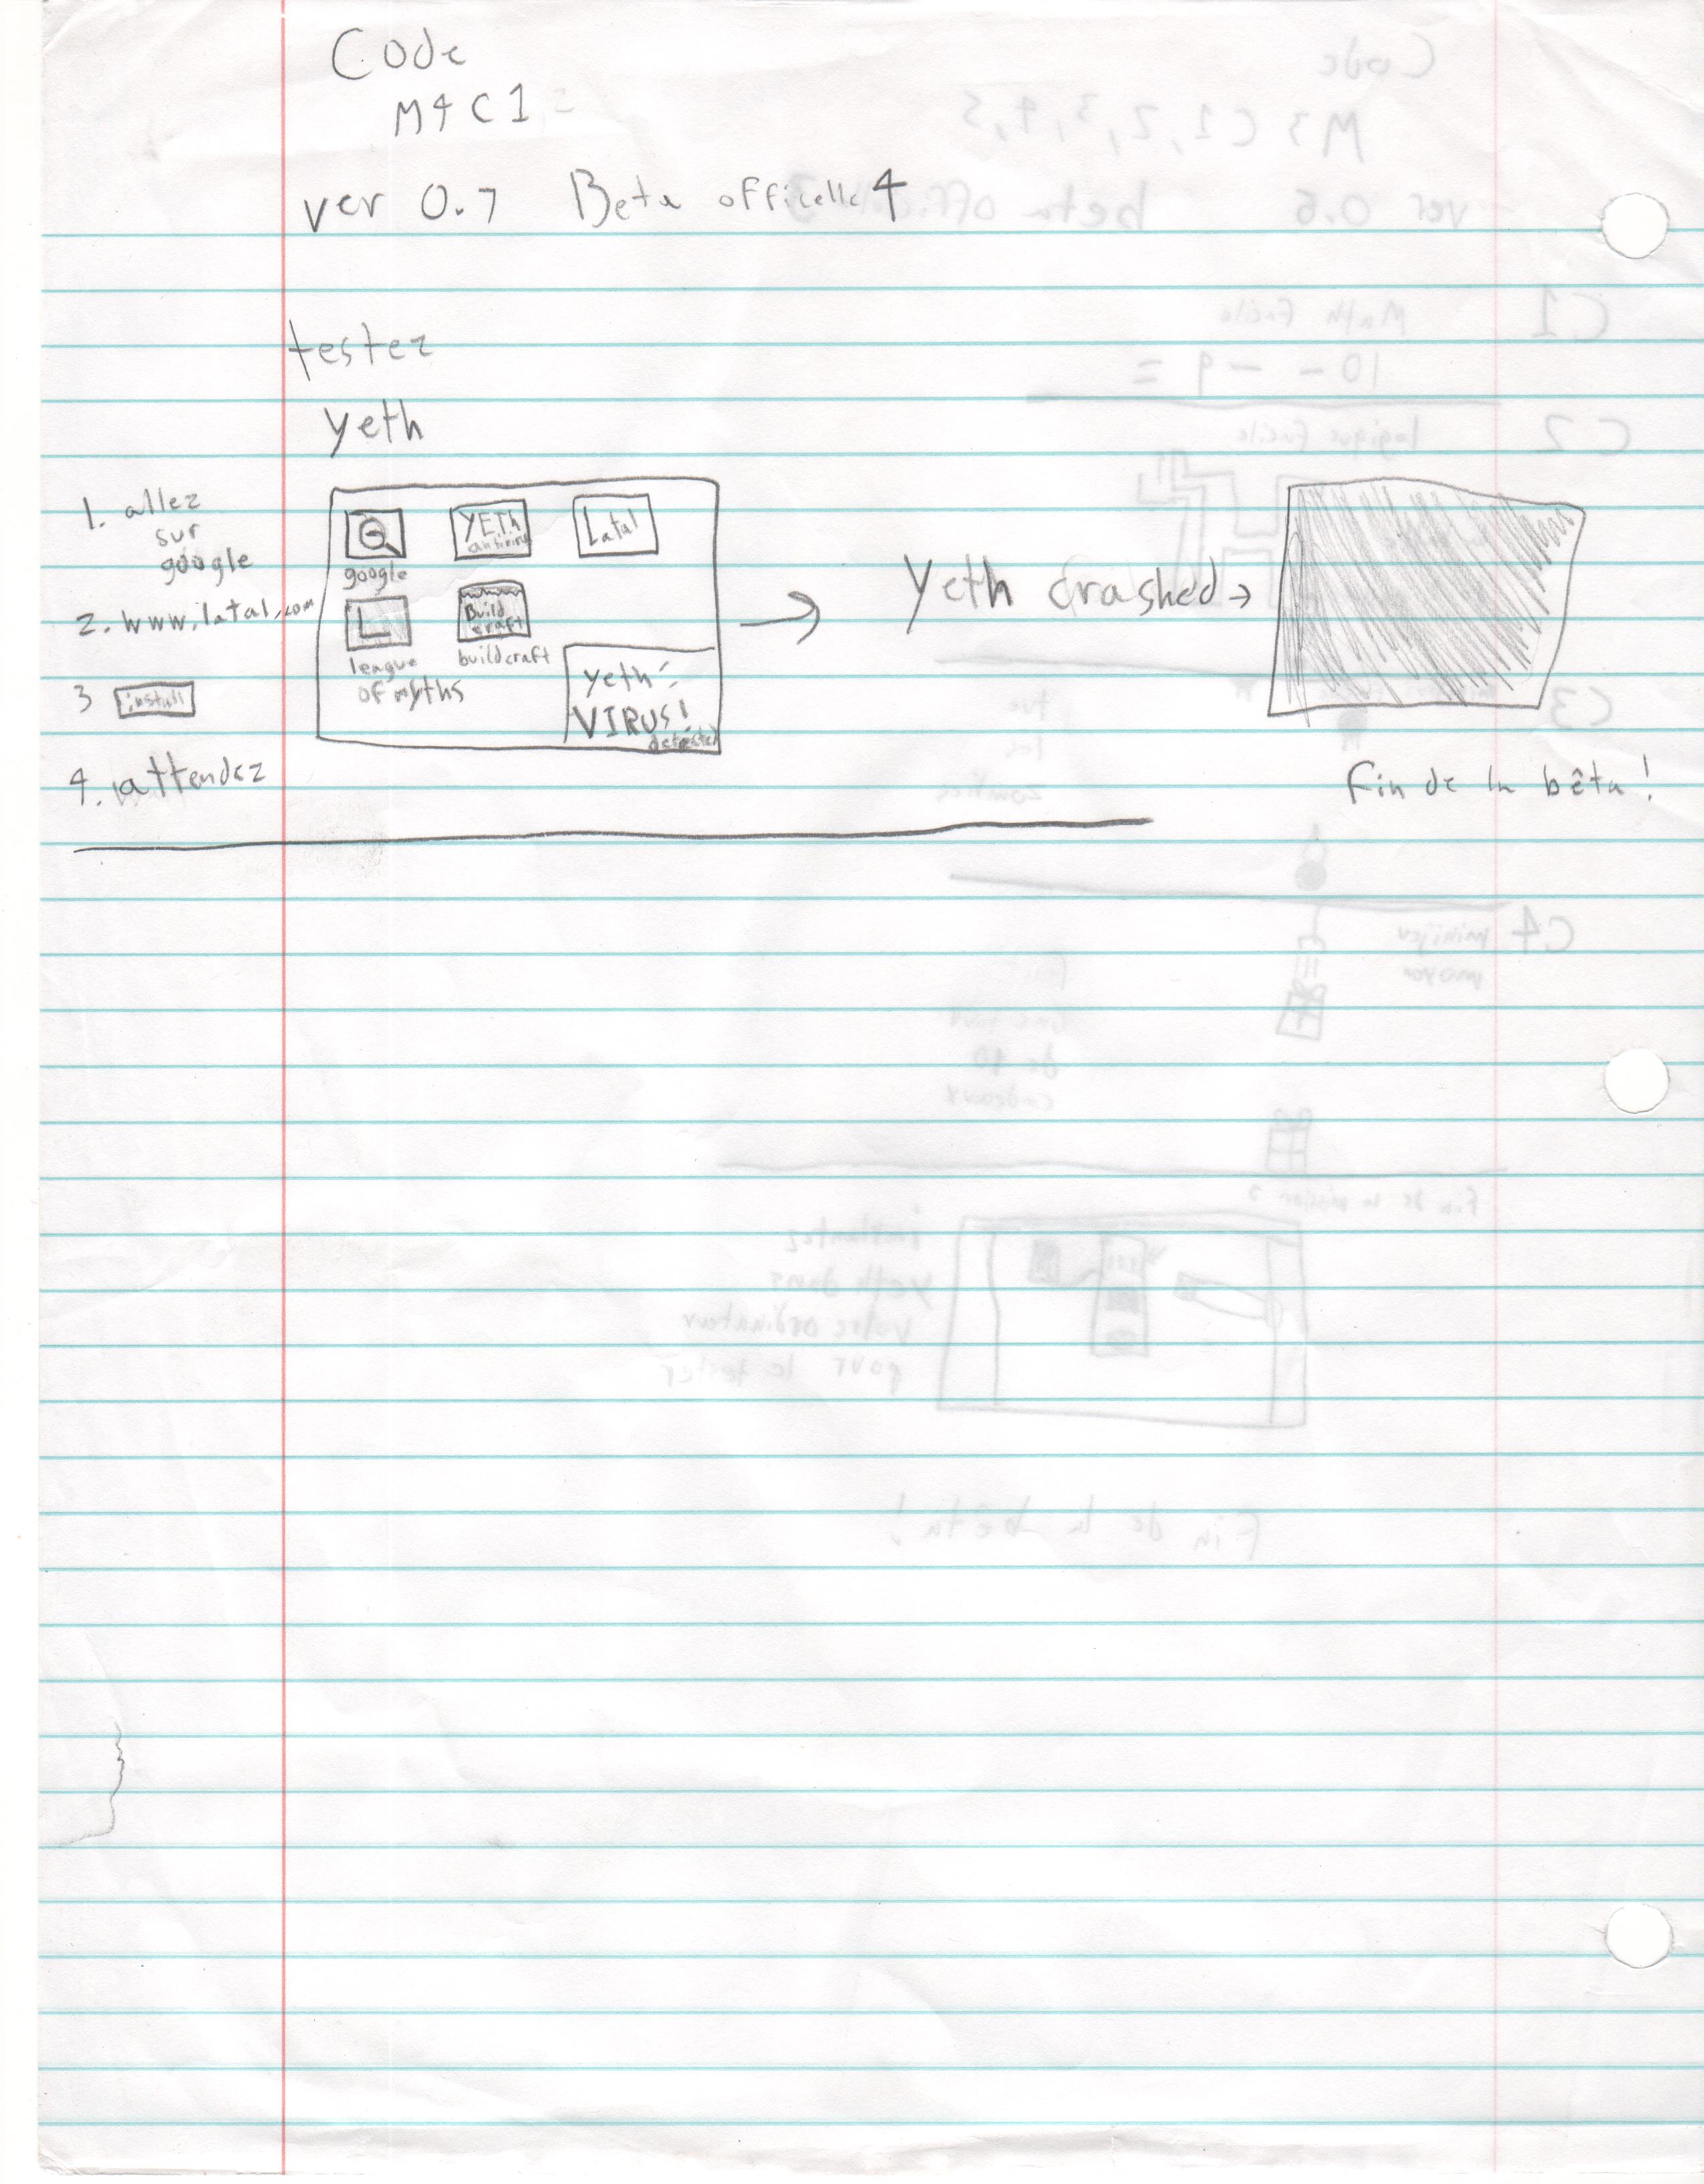 Code
M4C1
ver 0.7 Beta officelle 4
tester
yeth
1. allez
sur
google
2. www.latal.com
3 install
4. attendez
YETh
antivirus
Latal
google
L
Build
craft
league
of myths
buildcraft
yeth:
VIRUS!
detected
Yeth crashed →
Fin de la bêta !